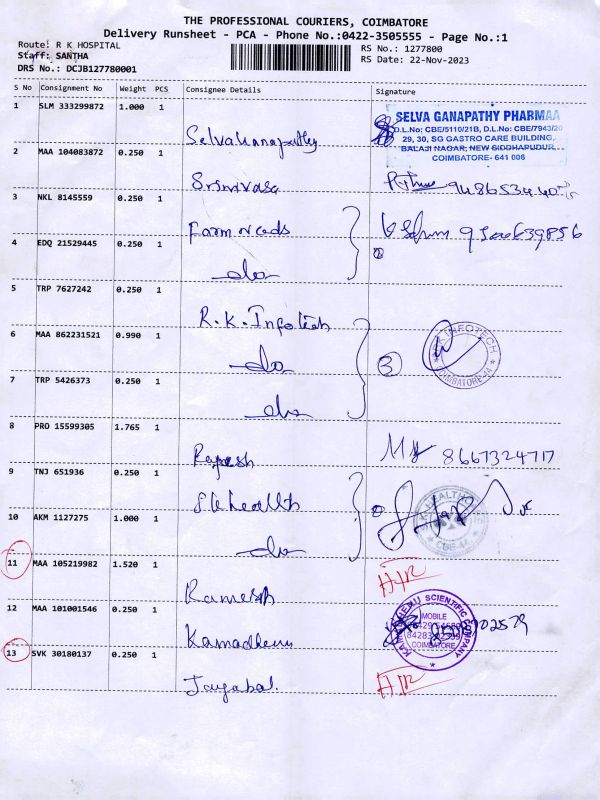 THE PROFESSIONAL COURIERS, COIMBATORE
Delivery Runsheet - PCA - Phone No.:0422-3505555 - Page No.:1
Route: R K HOSPITAL
Staff: SANTHA
DRS No.: DCJB127780001
RS No.: 1277800
RS Date: 22-Nov-2023
S No Consignment No Weight PCS Consignee Details Signature
1 SLM 333299872 1.000 1
Selvakanapathy
SELVA GANAPATHY PHARMAA
D.L.No: CBE/5110/21B, D.L.No: CBE/7943/20
29, 30, SG GASTRO CARE BUILDING,
BALAJI NAGAR, NEW SIDDHAPUDUR,
COIMBATORE- 641 006
2 MAA 104083872 0.250 1
Srinivasa
3 NKL 8145559 0.250 1
4 EDQ 21529445 0.250 1
do
5 TRP 7627242 0.250 1
R.K. Infotech
6 MAA 862231521 0.990 1
do
3
RK INFOTECH
COIMBATORE-14
7 TRP 5426373 0.250 1
do
8 PRO 15599305 1.765 1
Rajesh
8667324717
9 TNJ 651936 0.250 1
SK health
10 AKM 1127275 1.000 1
do
11 MAA 105219982 1.520 1
Ramesh
12 MAA 101001546 0.250 1
Kamadhenu
KAMADHENU SCIENTIFIC COMPANY
MOBILE
COIMBATORE
13 SVK 30180137 0.250 1
Jayabal.